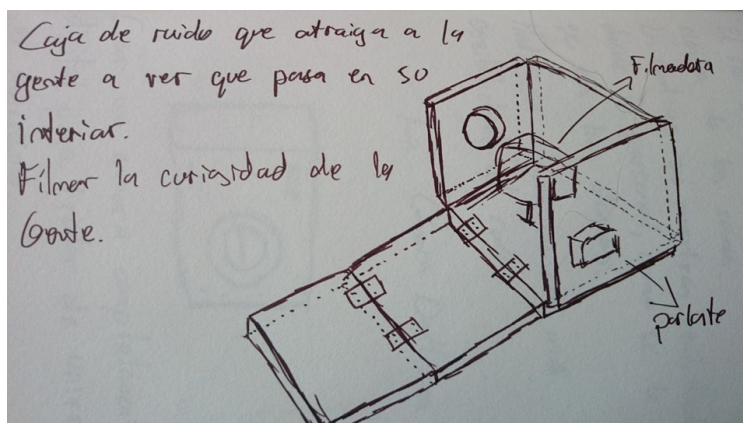 Caja de ruido que atraiga a la
gente a ver que pasa en so
interiar.
Filmar la curiosidad de la
Gente.
Filmadora
parlate